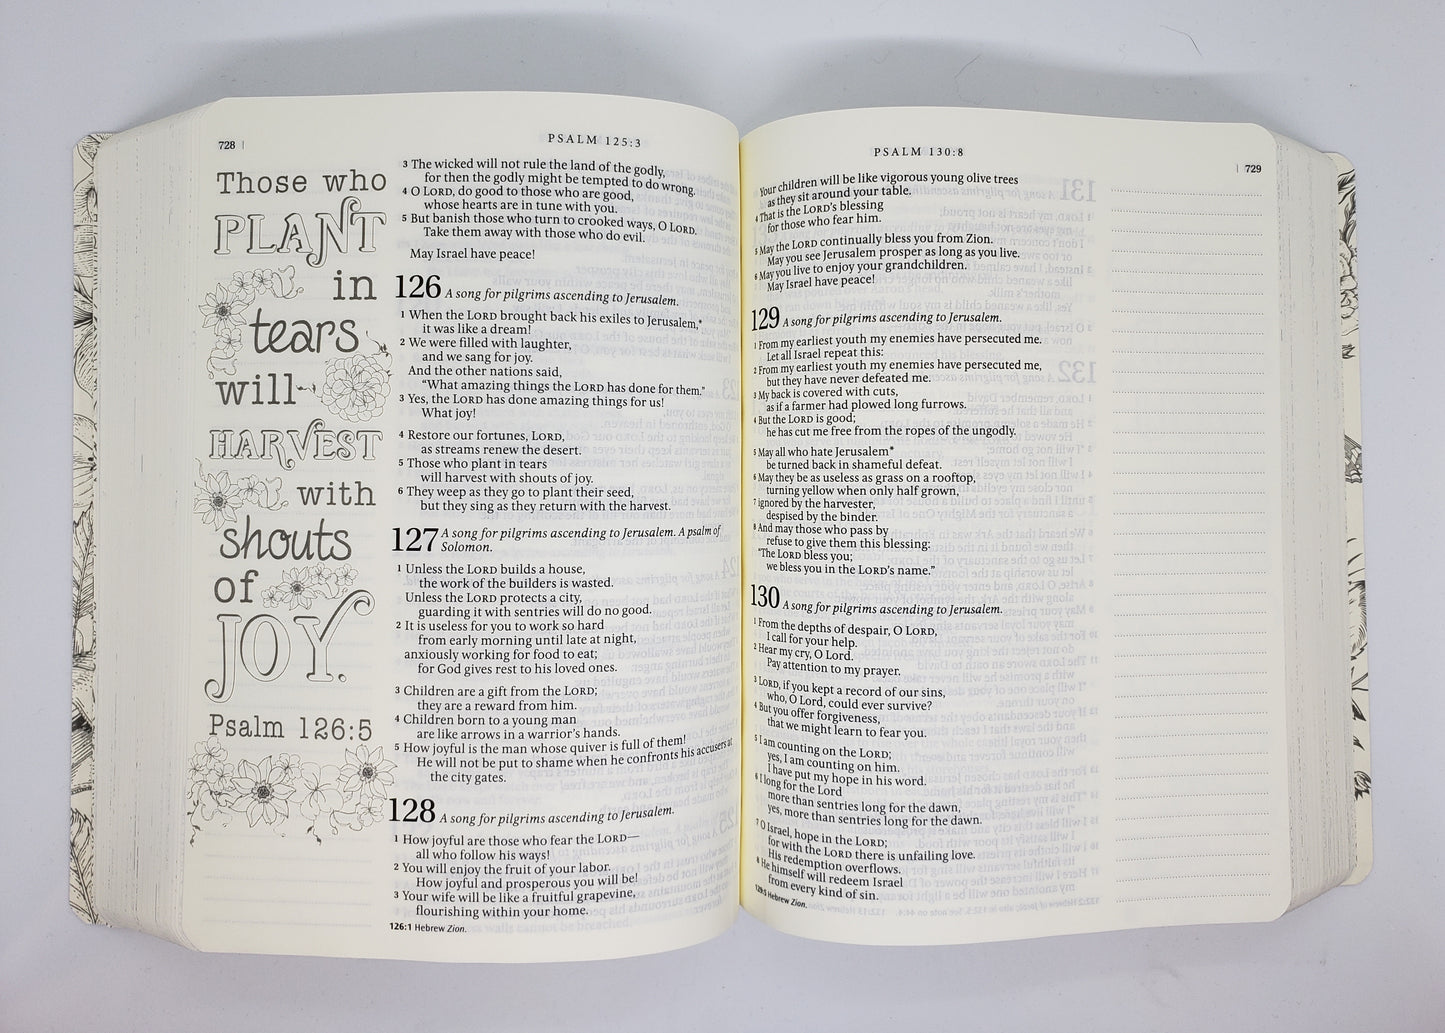 728 |
PSALM 125:3
Those who
PLANT
in
tears
will
HARVEST
with
shouts
of
JOY.
Psalm 126:5
3 The wicked will not rule the land of the godly,
for then the godly might be tempted to do wrong.
4 O LORD, do good to those who are good,
whose hearts are in tune with you.
5 But banish those who turn to crooked ways, O LORD.
Take them away with those who do evil.
May Israel have peace!
126 A song for pilgrims ascending to Jerusalem.
1 When the LORD brought back his exiles to Jerusalem,*
it was like a dream!
2 We were filled with laughter,
and we sang for joy.
And the other nations said,
“What amazing things the LORD has done for them.”
3 Yes, the LORD has done amazing things for us!
What joy!
4 Restore our fortunes, LORD,
as streams renew the desert.
5 Those who plant in tears
will harvest with shouts of joy.
6 They weep as they go to plant their seed,
but they sing as they return with the harvest.
127 A song for pilgrims ascending to Jerusalem. A psalm of
Solomon.
1 Unless the LORD builds a house,
the work of the builders is wasted.
Unless the LORD protects a city,
guarding it with sentries will do no good.
2 It is useless for you to work so hard
from early morning until late at night,
anxiously working for food to eat;
for God gives rest to his loved ones.
3 Children are a gift from the LORD;
they are a reward from him.
4 Children born to a young man
are like arrows in a warrior’s hands.
5 How joyful is the man whose quiver is full of them!
He will not be put to shame when he confronts his accusers at
the city gates.
128 A song for pilgrims ascending to Jerusalem.
1 How joyful are those who fear the LORD—
all who follow his ways!
2 You will enjoy the fruit of your labor.
How joyful and prosperous you will be!
3 Your wife will be like a fruitful grapevine,
flourishing within your home.
126:1 Hebrew Zion.
PSALM 130:8
| 729
Your children will be like vigorous young olive trees
as they sit around your table.
4 That is the LORD’s blessing
for those who fear him.
5 May the LORD continually bless you from Zion.
May you see Jerusalem prosper as long as you live.
6 May you live to enjoy your grandchildren.
May Israel have peace!
129 A song for pilgrims ascending to Jerusalem.
1 From my earliest youth my enemies have persecuted me.
Let all Israel repeat this:
2 From my earliest youth my enemies have persecuted me,
but they have never defeated me.
3 My back is covered with cuts,
as if a farmer had plowed long furrows.
4 But the LORD is good;
he has cut me free from the ropes of the ungodly.
5 May all who hate Jerusalem*
be turned back in shameful defeat.
6 May they be as useless as grass on a rooftop,
turning yellow when only half grown,
7 ignored by the harvester,
despised by the binder.
8 And may those who pass by
refuse to give them this blessing:
“The LORD bless you;
we bless you in the LORD’s name.”
130 A song for pilgrims ascending to Jerusalem.
1 From the depths of despair, O LORD,
I call for your help.
2 Hear my cry, O Lord.
Pay attention to my prayer.
3 LORD, if you kept a record of our sins,
who, O Lord, could ever survive?
4 But you offer forgiveness,
that we might learn to fear you.
5 I am counting on the LORD;
yes, I am counting on him.
I have put my hope in his word.
6 I long for the Lord
more than sentries long for the dawn,
yes, more than sentries long for the dawn.
7 O Israel, hope in the LORD;
for with the LORD there is unfailing love.
His redemption overflows.
8 He himself will redeem Israel
from every kind of sin.
129:5 Hebrew Zion.